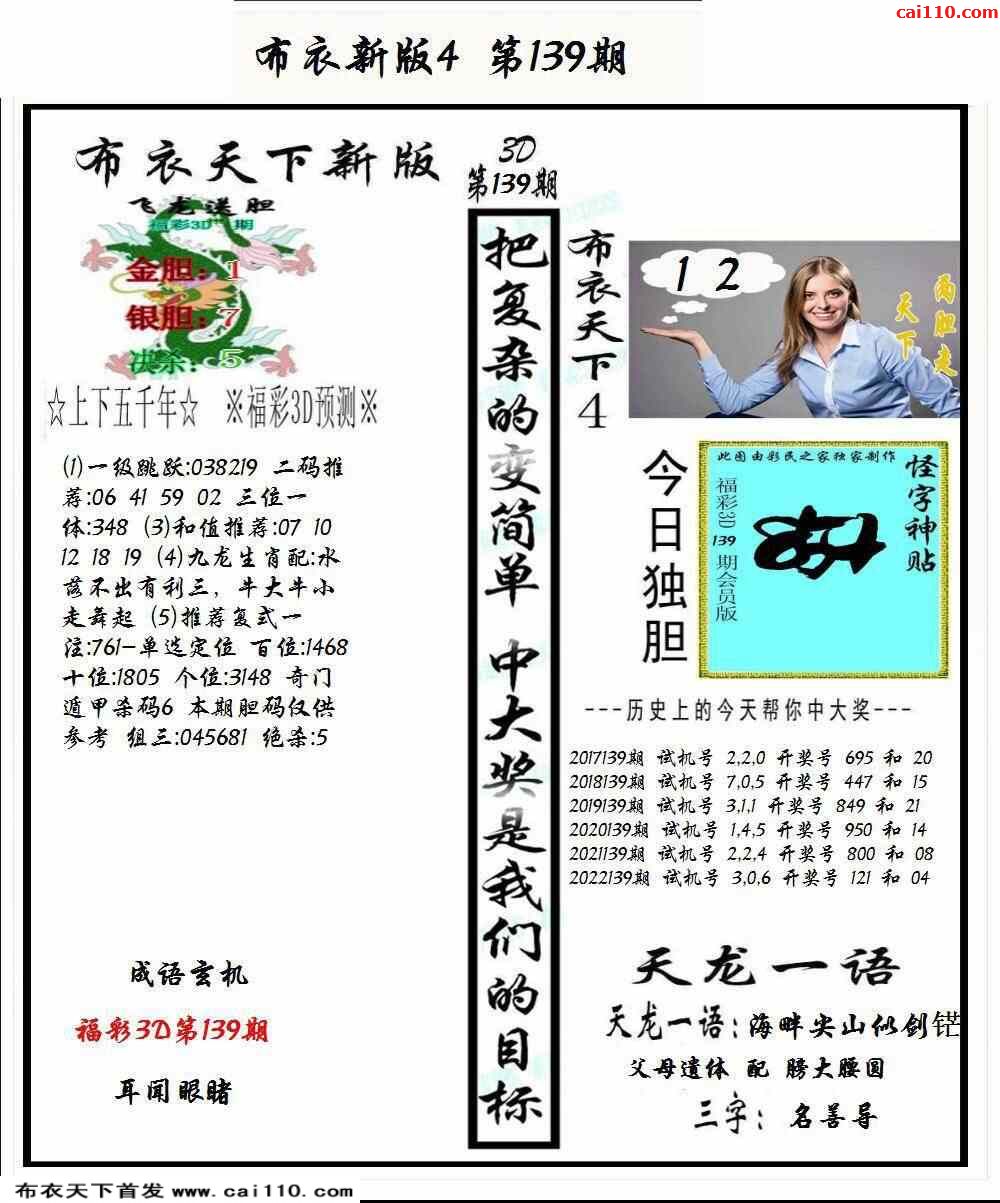 cai110.com
布衣新版4 第139期
布衣天下新版
3D
第139期
飞龙送胆
福彩3D 期
金胆：1
银胆：7
决杀：5
☆上下五千年☆ ※福彩3D预测※
(1)一级跳跃:038219 二码推
荐:06 41 59 02 三位一
体:348 (3)和值推荐:07 10
12 18 19 (4)九龙生肖配:水
落不出有利三，牛大牛小
走舞起 (5)推荐复式一
注:761-单选定位 百位:1468
十位:1805 个位:3148 奇门
遁甲杀码6 本期胆码仅供
参考 组三:045681 绝杀:5
成语玄机
福彩3D第139期
耳闻眼睹
把复杂的变简单 中大奖是我们的目标
布衣天下4
1 2
两胆走
天下
今日独胆
此图由彩民之家独家制作
怪字神贴
福彩3D 139 期会员版
---历史上的今天帮你中大奖---
2017139期 试机号 2,2,0 开奖号 695 和 20
2018139期 试机号 7,0,5 开奖号 447 和 15
2019139期 试机号 3,1,1 开奖号 849 和 21
2020139期 试机号 1,4,5 开奖号 950 和 14
2021139期 试机号 2,2,4 开奖号 800 和 08
2022139期 试机号 3,0,6 开奖号 121 和 04
天龙一语
天龙一语：海畔尖山似剑铓
父母遗体 配 膀大腰圆
三字： 名善导
布衣天下首发 www.cai110.com